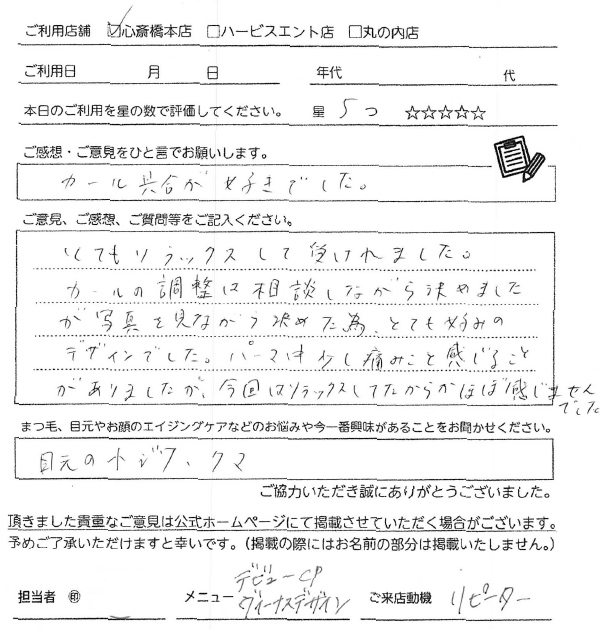 ご利用店舗 ☑心斎橋本店 □ハービスエント店 □丸の内店
ご利用日 月 日 年代 代
本日のご利用を星の数で評価してください。 星 5 つ ☆☆☆☆☆
ご感想・ご意見をひと言でお願いします。
カール具合が好きでした。
ご意見、ご感想、ご質問等をご記入ください。
とてもリラックスして受けれました。
カールの調整は相談しながら決めました
が写真を見ながら決めた為、とても好みの
デザインでした。パーマは少し痛みこと感じること
がありましたが、今回はリラックスしてたからかほぼ感じません
でした
まつ毛、目元やお顔のエイジングケアなどのお悩みや今一番興味があることをお聞かせください。
目元の小ジワ、クマ
ご協力いただき誠にありがとうございました。
頂きました貴重なご意見は公式ホームページにて掲載させていただく場合がございます。
予めご了承いただけますと幸いです。(掲載の際にはお名前の部分は掲載いたしません。)
デビューCP
担当者 ㊞ メニュー ヴィーナスデザイン ご来店動機 リピーター